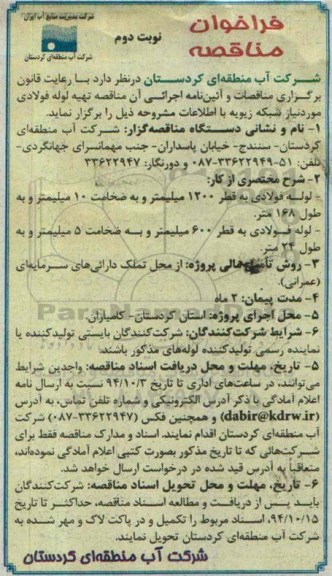 شرکت مدیریت منابع آب ایران
شرکت آب منطقه‌ای کردستان
فراخوان
مناقصه
نوبت دوم
شرکت آب منطقه‌ای کردستان درنظر دارد با رعایت قانون
برگزاری مناقصات و آئین‌نامه اجرائی آن مناقصه تهیه لوله فولادی
موردنیاز شبکه زیویه با اطلاعات مشروحه ذیل را برگزار نماید.
۱- نام و نشانی دستگاه مناقصه‌گزار: شرکت آب منطقه‌ای
کردستان- سنندج- خیابان پاسداران- جنب مهمانسرای جهانگردی-
تلفن: ۵۱-۳۳۶۲۲۹۴۹-۰۸۷ و دورنگار: ۳۳۶۲۲۹۴۷
۲- شرح مختصری از کار:
- لوله فولادی به قطر ۱۲۰۰ میلیمتر و به ضخامت ۱۰ میلیمتر و به
طول ۱۶۸ متر.
- لوله فولادی به قطر ۶۰۰ میلیمتر و به ضخامت ۵ میلیمتر و به
طول ۲۴ متر.
۳- روش تأمین مالی پروژه: از محل تملک دارائی‌های سرمایه‌ای
(عمرانی).
۴- مدت پیمان: ۲ ماه
۵- محل اجرای پروژه: استان کردستان- کامیاران.
۶- شرایط شرکت‌کنندگان: شرکت‌کنندگان بایستی تولیدکننده یا
نماینده رسمی تولیدکننده لوله‌های مذکور باشند.
۵- تاریخ، مهلت و محل دریافت اسناد مناقصه: واجدین شرایط
می‌توانند، در ساعت‌های اداری تا تاریخ ۹۴/۱۰/۳ نسبت به ارسال نامه
اعلام آمادگی با ذکر آدرس الکترونیکی و شماره تلفن تماس، به آدرس
(dabir@kdrw.ir) و همچنین فکس (۳۳۶۲۲۹۴۷-۰۸۷) شرکت
آب منطقه‌ای کردستان اقدام نمایند. اسناد و مدارک مناقصه فقط برای
شرکت‌هائی که تا تاریخ مذکور بصورت کتبی اعلام آمادگی نموده‌اند،
متعاقباً به آدرس قید شده در درخواست ارسال خواهد شد.
۶- تاریخ، مهلت و محل تحویل اسناد مناقصه: شرکت‌کنندگان
باید پس از دریافت و مطالعه اسناد مناقصه، حداکثر تا تاریخ
۹۴/۱۰/۱۵، اسناد مربوط را تکمیل و در پاکت لاک و مهر شده به
شرکت آب منطقه‌ای کردستان تحویل نمایند.
شرکت آب منطقه‌ای کردستان